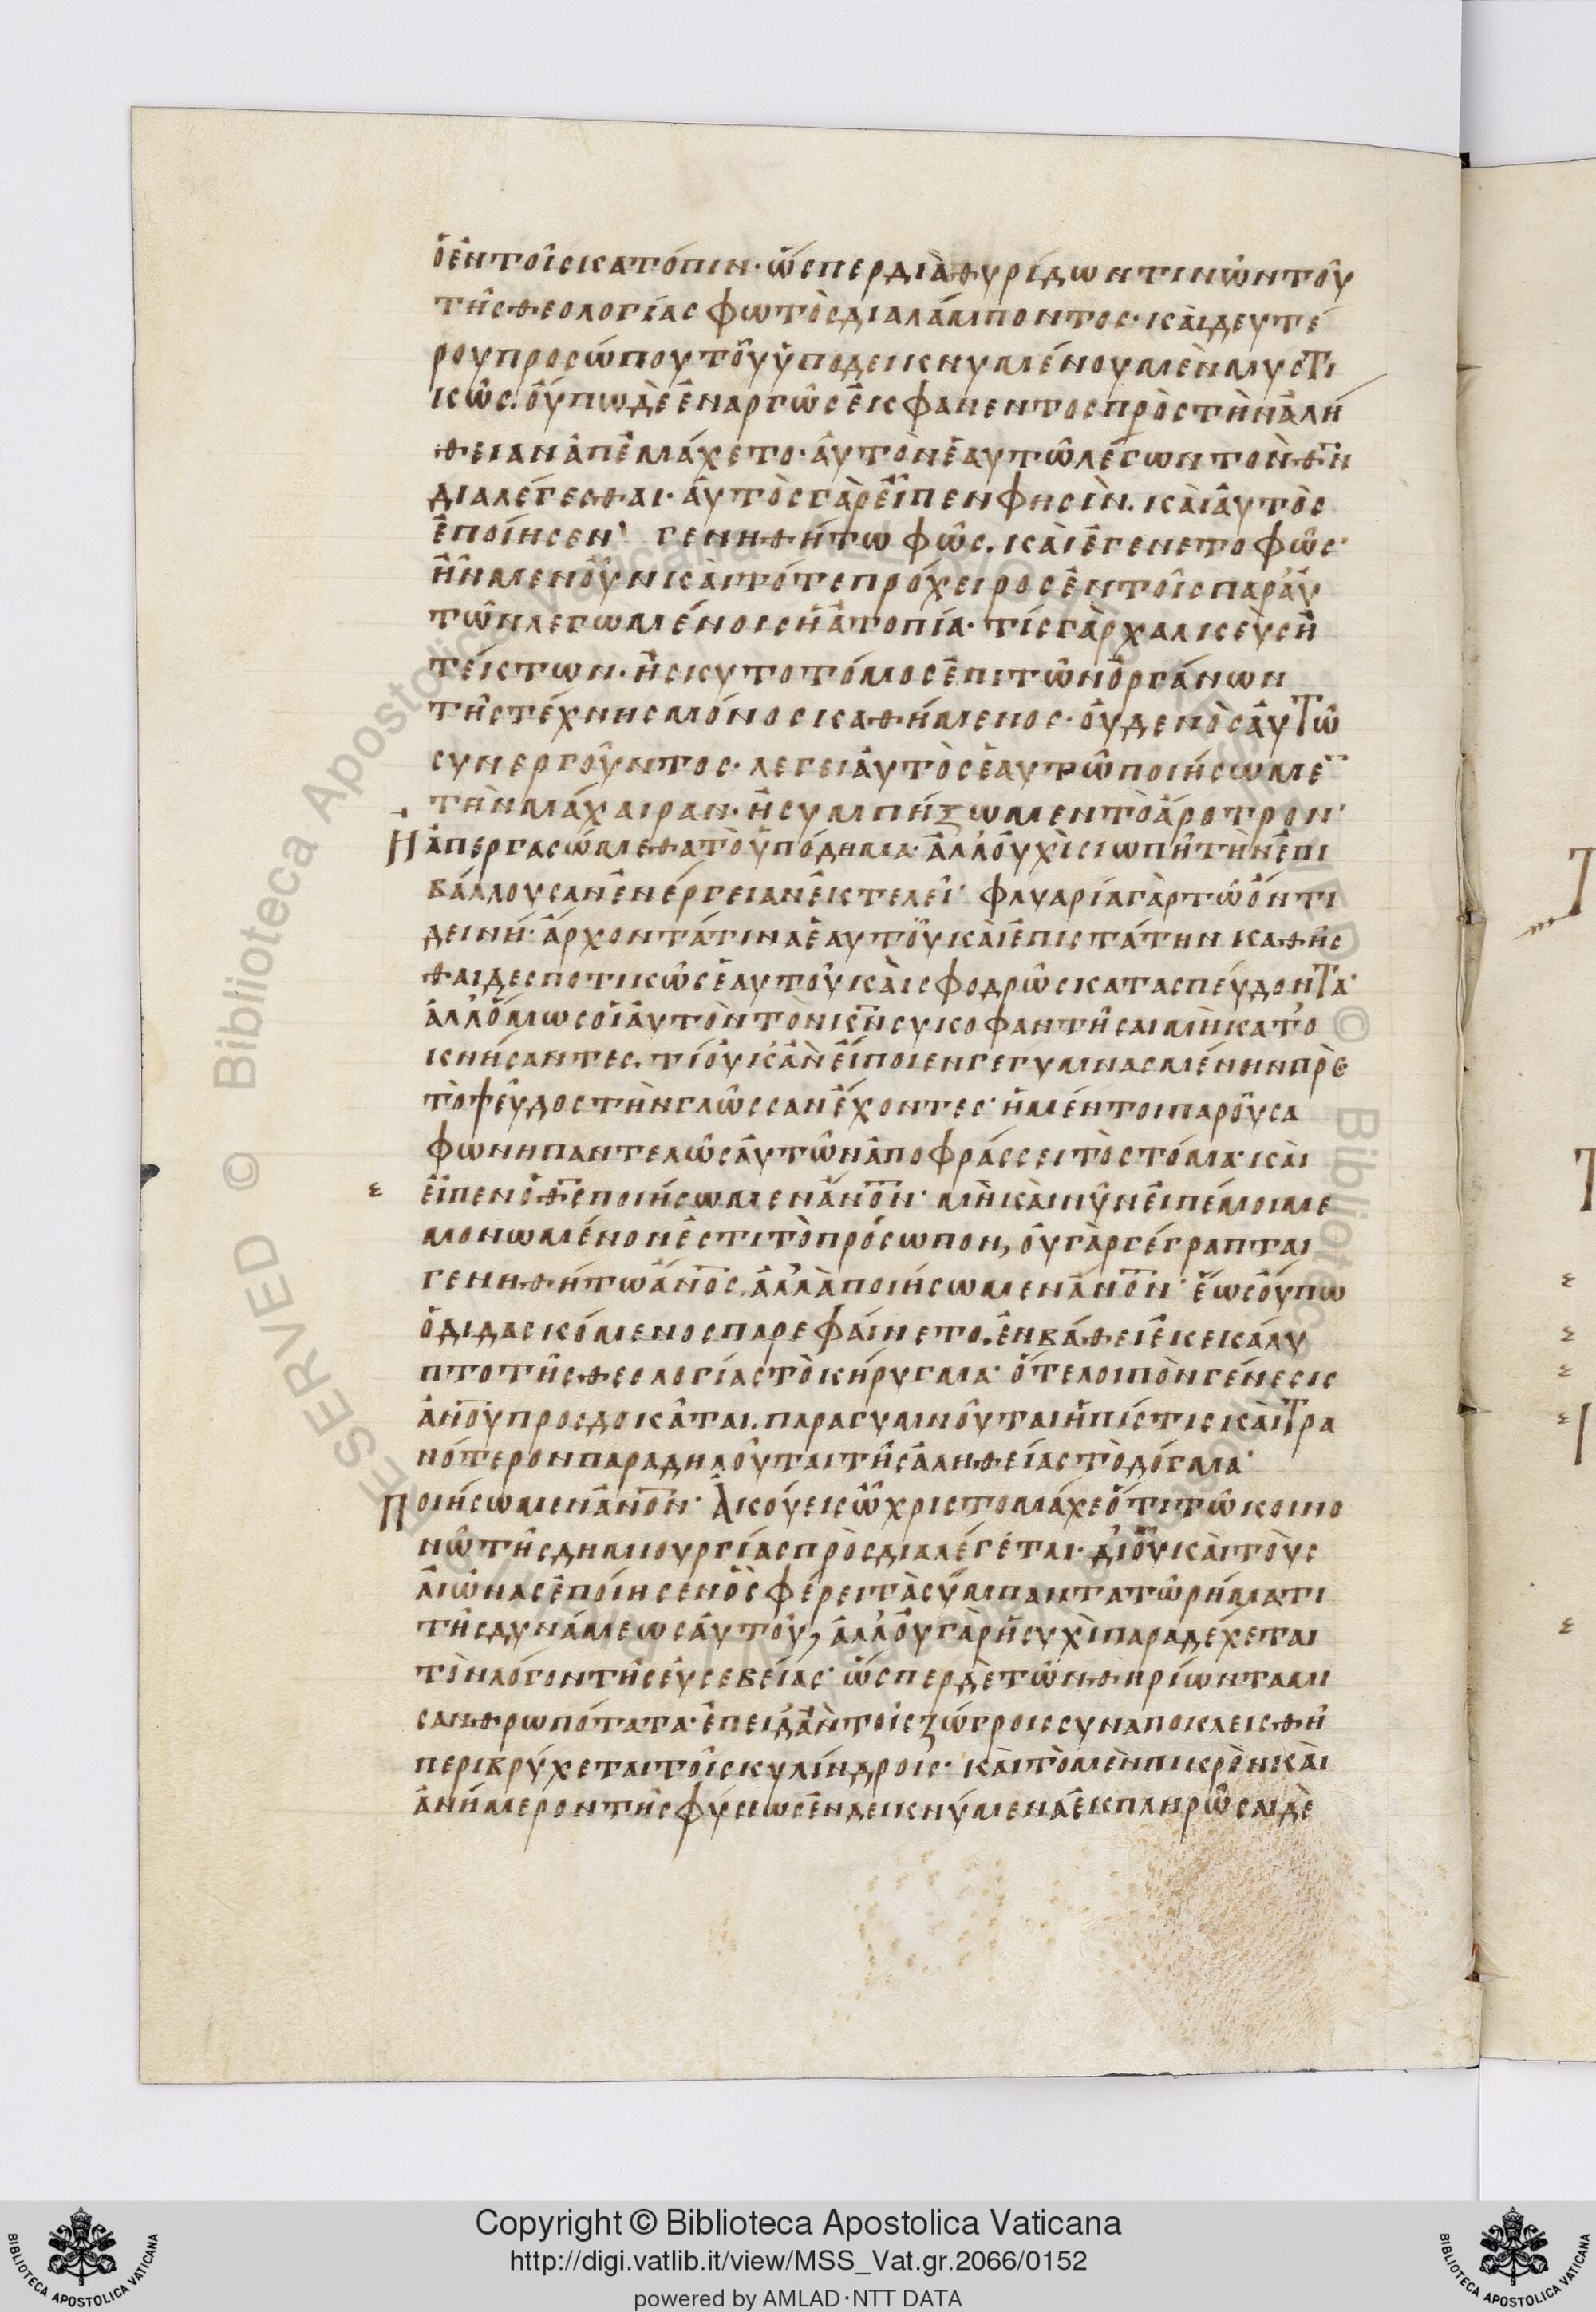 ὁ ἐν τοῖς κατόπιν· ὥσπερ διὰ θυρίδων τινῶν τοῦ
τῆς θεολογίας φωτὸς διαλάμποντος· καὶ δευτέ
ρου προσώπου τοῦ ὑποδεικνυμένου μὲν μυστι
κῶς. οὔπω δὲ ἐναργῶς ἐκφανεντος πρὸς τὴν ἀλή
θειαν ἀπεμάχετο· αὐτὸν ἑαυτῷ λέγων τὸν θν
διαλέγεσθαι· αὐτὸς γὰρ εἶπεν φησὶν. καὶ αὐτὸς
ἐποίησεν· γενηθήτω φῶς. καὶ ἐγενετο φῶς·
ἦν μεν οὖν καὶ τότε πρόχειρος ἐν τοῖς παρ' αὐ
τῶν λεγωμένοις ἡ ἀτοπία· τίς γὰρ χαλκεὺς ἢ
τέκτων· ἢ σκυτοτόμος ἐπὶ τῶν ὀργάνων
τῆς τέχνης μόνος καθήμενος· οὐδενὸς αὐτῷ
συνεργοῦντος· λεγει αὐτὸς ἑαυτῷ ποιήσωμε
τὴν μάχαιραν· ἢ συμπήξωμεν τὸ ἄροτρον·
Ἢ ἀπεργασώμεθα τὸ ὑπόδημα· ἀλλ' οὐχὶ σιωπῇ τὴν ἐπι
βάλλουσαν ἐνέργειαν ἐκτελεῖ· φλυαρία γὰρ τῷ ὄντι
δεινή· ἄρχοντά τινα ἑαυτοῦ καὶ ἐπιστάτην καθῆς
θαι δεσποτικῶς ἑαυτοῦ καὶ σφοδρῶς κατασπεύδοντα·
ἀλλ' ὅμως οἱ αὐτὸν τὸν κν συκοφαντῆσαι μὴ κατο
κνήσαντες. τί οὐκ ἂν εἴποιεν γεγυμνασμένην πρὸς
τὸ ψεῦδος τὴν γλῶσσαν ἔχοντες· ἡ μέντοι παροῦσα
φωνὴ παντελῶς αὐτῶν ἀποφράσσει τὸ στόμα· καὶ
εἶπεν ὁ θς ποιήσωμεν ἄνον· μὴ καὶ νῦν εἰπέ μοι με
μονωμένον ἐστι τὸ πρόσωπον, οὐ γὰρ γέγραπται
γενηθήτω ἄνος. ἀλλὰ ποιήσωμεν ἄνον· ἕως οὔπω
ὁ διδασκόμενος παρεφαίνετο. ἐν βάθει ἐκεκάλυ
πτο τῆς θεολογίας τὸ κήρυγμα· ὅτε λοιπὸν γένεσις
ἀνου προσδοκᾶται. παραγυμνοῦται ἡ πίστις καὶ τρα
νότερον παραδηλοῦται τῆς ἀληθείας τὸ δόγμα·
Ποιήσωμεν ἄνον· Ἀκούεις ὦ χριστομάχε ὅτι τῷ κοινο
νῷ τῆς δημιουργίας προσδιαλέγεται· δι' οὗ καὶ τοὺς
αἰῶνας ἐποίησεν ὃς φέρει τὰ σύμπαντα τῷ ρήματι
τῆς δυνάμεως αὐτοῦ, ἀλλ' οὐ γὰρ ἡσυχῆ παραδέχεται
τὸν λόγον τῆς εὐσεβείας· ὥσπερ δὲ τῶν θηρίων τὰ μι
σανθρωπότατα· ἐπειδὰν τοῖς ζώγροις συναποκλεισθῇ
περιβρύχεται τοῖς κυλίνδροις· καὶ τὸ μὲν πικρὸν καὶ
ἀνήμερον τῆς φύσεως ἐνδεικνύμενα ἐκπληρῶσαι δὲ
Copyright © Biblioteca Apostolica Vaticana
http://digi.vatlib.it/view/MSS_Vat.gr.2066/0152
powered by AMLAD·NTT DATA